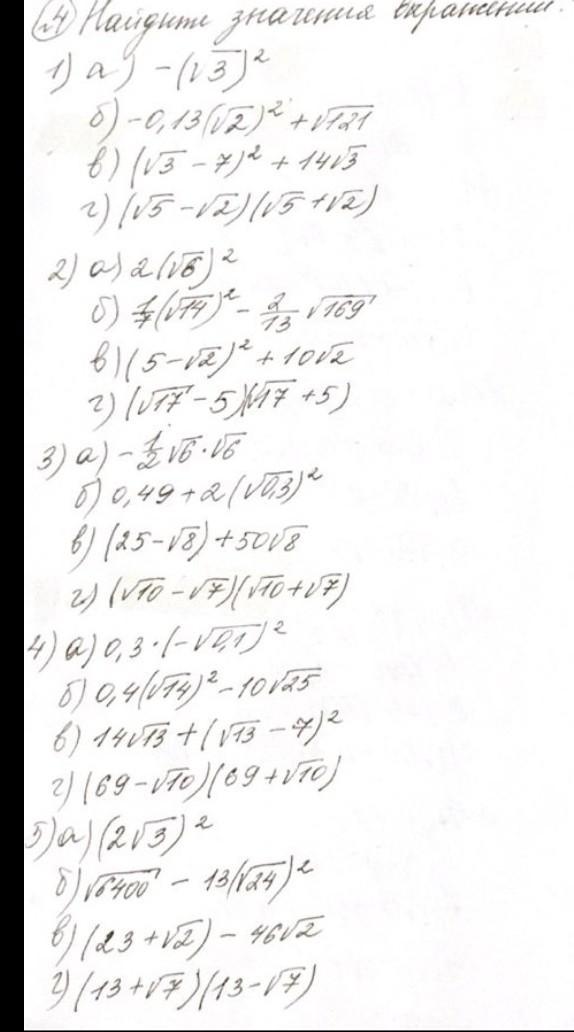 №4 Найдите значения выражений.
1) а) -(√3)²
б) -0,13(√2)² + √121
в) (√3 - 7)² + 14√3
г) (√5 - √2)(√5 + √2)
2) а) 2(√6)²
б) 1/7(√14)² - 2/13 √169
в) (5 - √2)² + 10√2
г) (√17 - 5)(√17 + 5)
3) а) -1/2√6 · √6
б) 0,49 + 2(√0,3)²
в) (25 - √8) + 50√8
г) (√10 - √7)(√10 + √7)
4) а) 0,3 · (-√0,1)²
б) 0,4(√14)² - 10√25
в) 14√13 + (√13 - 7)²
г) (69 - √10)(69 + √10)
5) а) (2√3)²
б) √6400 - 13(√24)²
в) (23 + √2) - 46√2
г) (13 + √7)(13 - √7)